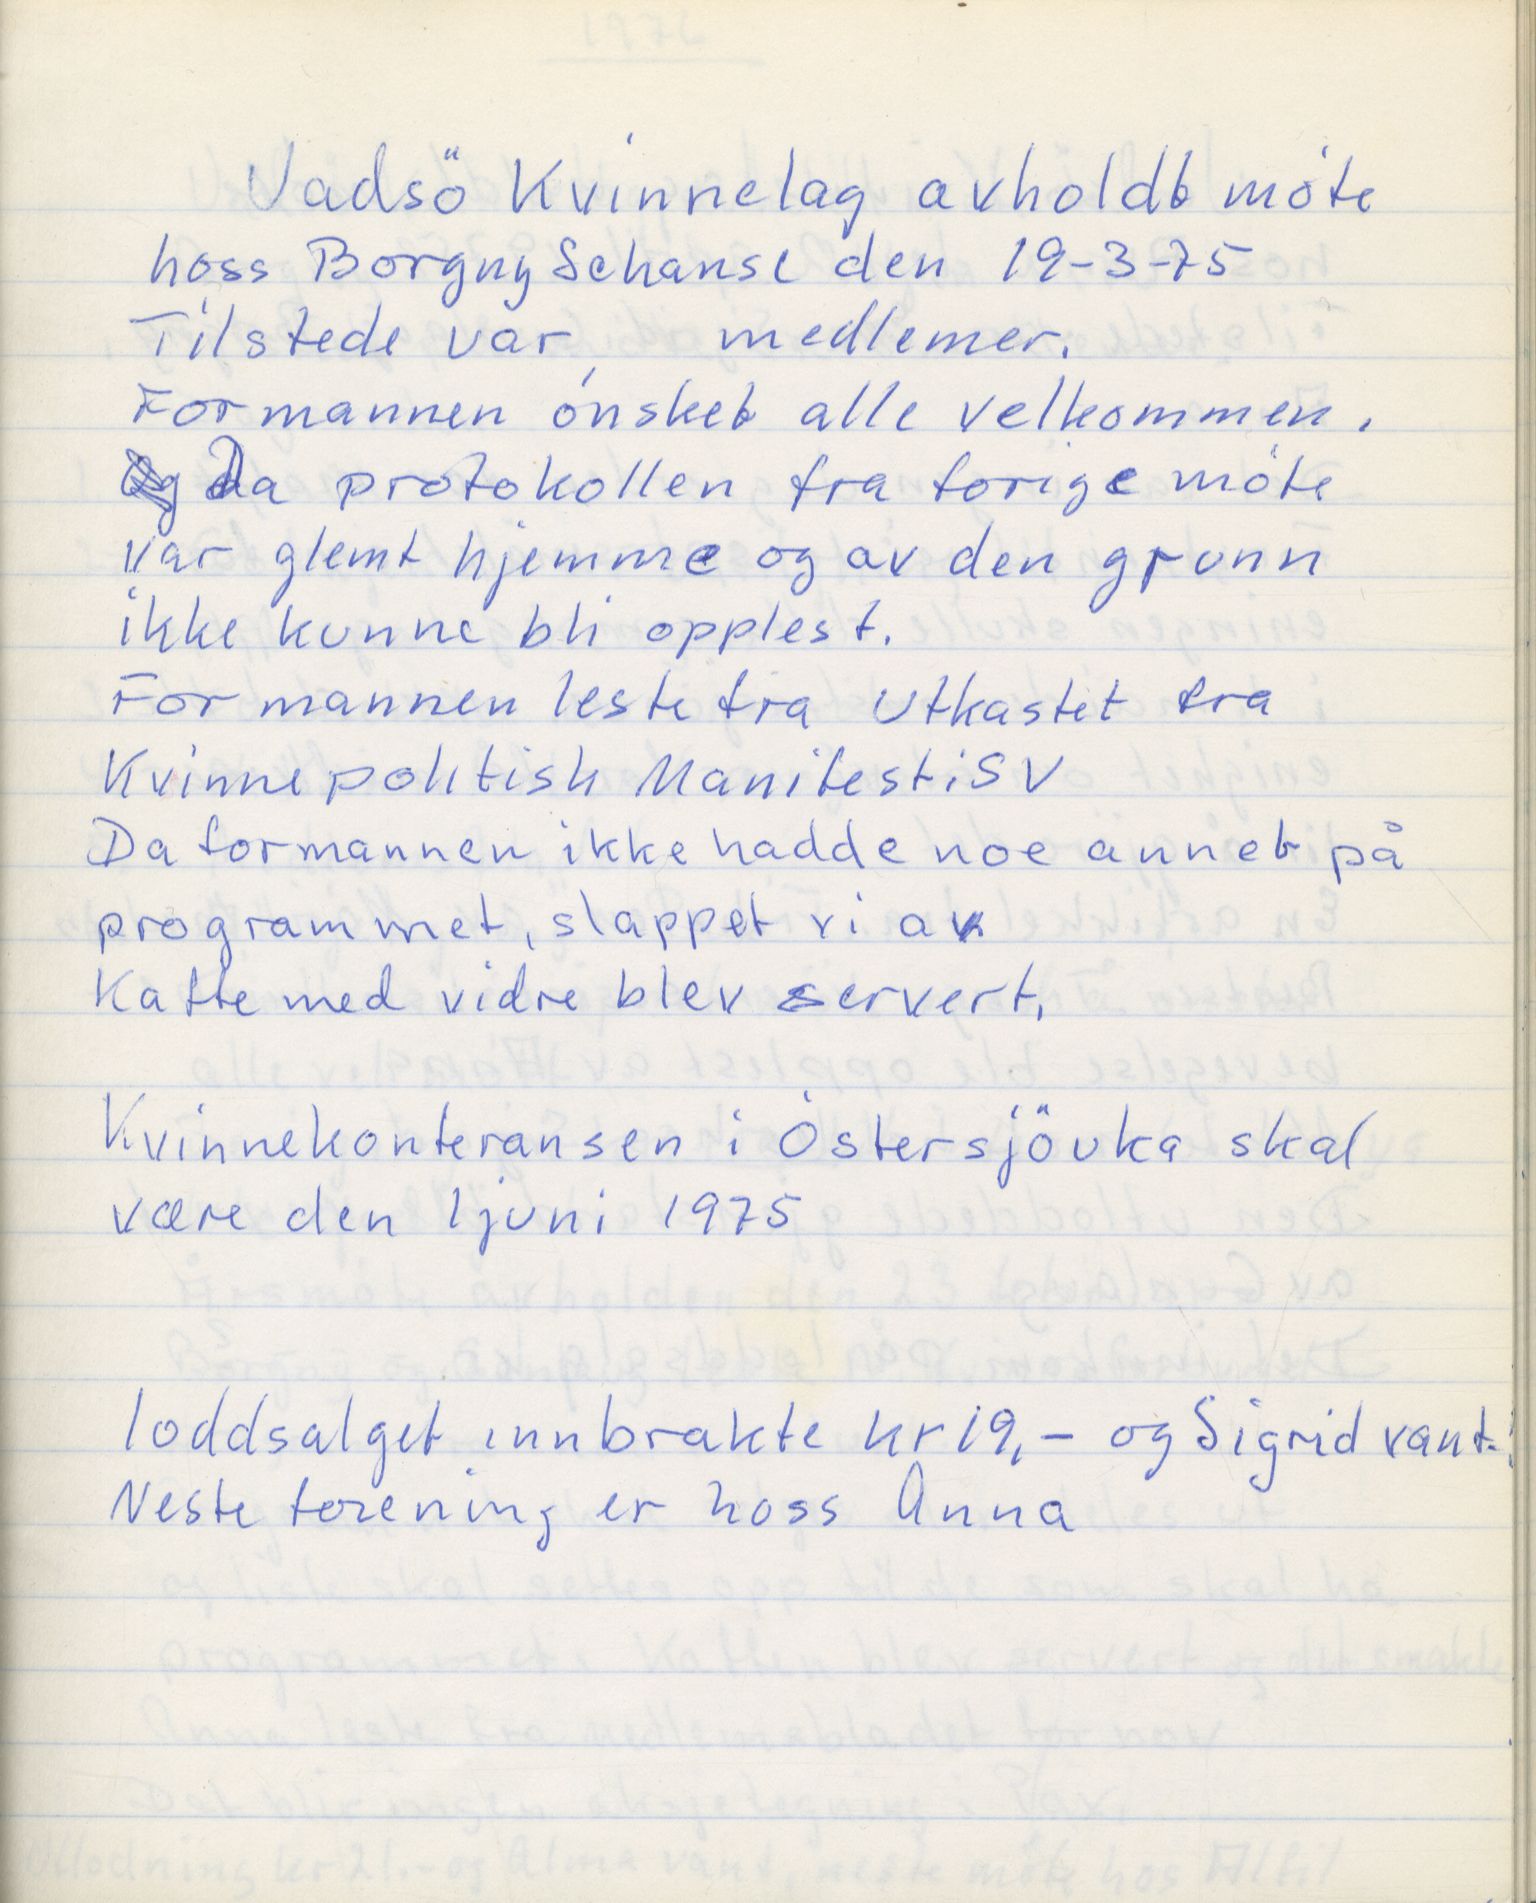 Vadsö Kvinnelag avholdt möte
hoss Borgny Schanse den 19-3-75
Tilstede var medlemer.
Formannen ónsket alle velkommen.
Da protokollen fra forige möte
var glemt hjemme og av den grunn
ikke kunne bli opplest.
Formannen leste fra Utkastet fra
Kvinnepolitisk Manifest i SV
Da formannen ikke hadde noe annet på
programmet, slappet vi av
Kaffe med vidre blev servert,
Kvinnekonferansen i Östersjöuka skal
være den 1 juni 1975
loddsalget innbrakte kr 19,- og Sigrid vant.
Neste forening er hoss Anna